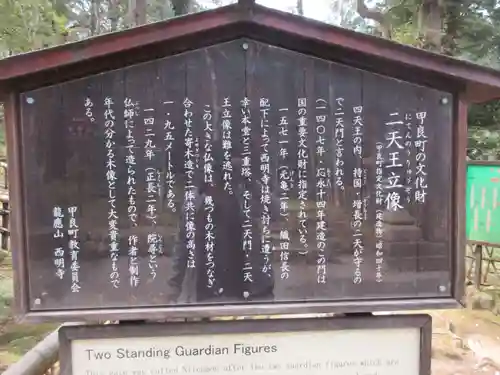 甲良町の文化財
にてんのうりゅうぞう
二天王立像
(甲良町指定文化財
四天王の内、持国・増長の二天が守るの
で二天門と言われる。
(一四〇七年・応永十四年建造のこの門は
国の重要文化財に指定されている。)
一五七一年(元亀二年)、織田信長の
配下によって西明寺は焼き討ちに遭うが、
幸い本堂と三重塔、そして二天門・二天
王立像は難を逃れた。
この大きな仏像は、幾つもの木材をつなぎ
合わせた寄木造で二体共に像の高さは
一・九五メートルである。
一四二九年(正長二年)、院尋という
仏師によって造られたもので、作者と制作
年代の分かる木像として大変貴重なもので
ある。
甲良町教育委員会
龍應山 西明寺
Two Standing Guardian Figures
This gate was called Nitenmon after the two guardian figures which are